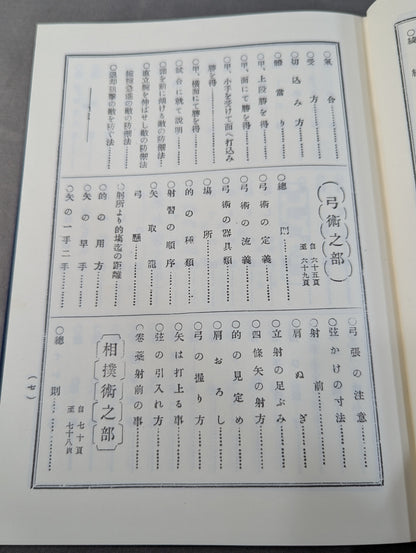 ○氣合
○受方
○切込み方
○體當り
○甲、上段勝を得
○甲、面にて勝を得
○甲、小手を受けて面へ打込み
勝を得
○甲、橫面にて勝を得
○試合に就て說明
○躰を前に傾ける敵の防禦法
○直立腕を伸ばせし敵の防禦法
○退却狙擊の敵を防ぐ法
弓術之部
自六十五頁
至六十九頁
○總則
○弓術の定義
○弓術の流義
○弓術の器具類
○場所
○的の種類
○射習の順序
○矢取籠
○弓懸
○射所より的場迄の距離
○的の用方
○矢の早手
○矢の一手二手
○弓張の注意
○弦かけの寸法
○射前
○肩ぬぎ
○立射の足ぶみ
○四條矢の射方
○的の見定め
○肩おろし
○弓の握り方
○矢は打上る事
○弦の引入れ方
○卷藁射前の事
相撲術之部
自七十頁
至七十八頁
○總則
(七)